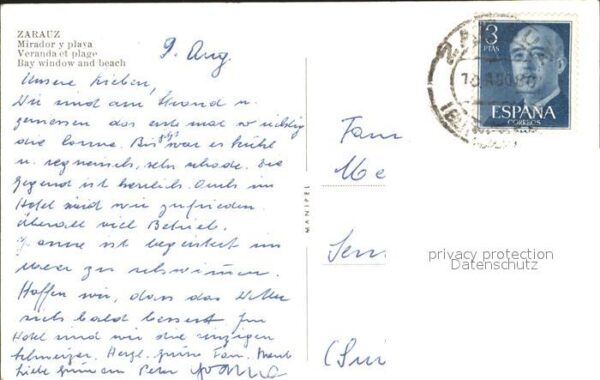 ZARAUZ
Mirador y playa
Veranda et plage
Bay window and beach
9. Aug
Unsere Lieben,
Wir sind am Strand u.
geniessen das erste mal so richtig
die Sonne. Bis war es kühl
u. regnerisch, sehr schade. Die
Gegend ist herrlich. Auch im
Hotel sind wir zufrieden.
Überall viel Betrieb.
ist begeistert im
Meer zu schwimmen.
Hoffen wir, dass das Wetter
sich bald bessert. Im
Hotel sind wir die einzigen
Schweizer. Herzl. Grüsse Fam.
Liebe Peter
MANIPEL
Fam
Me
Sem
(Sui
3
PTAS
ESPAÑA
CORREOS
privacy protection
Datenschutz